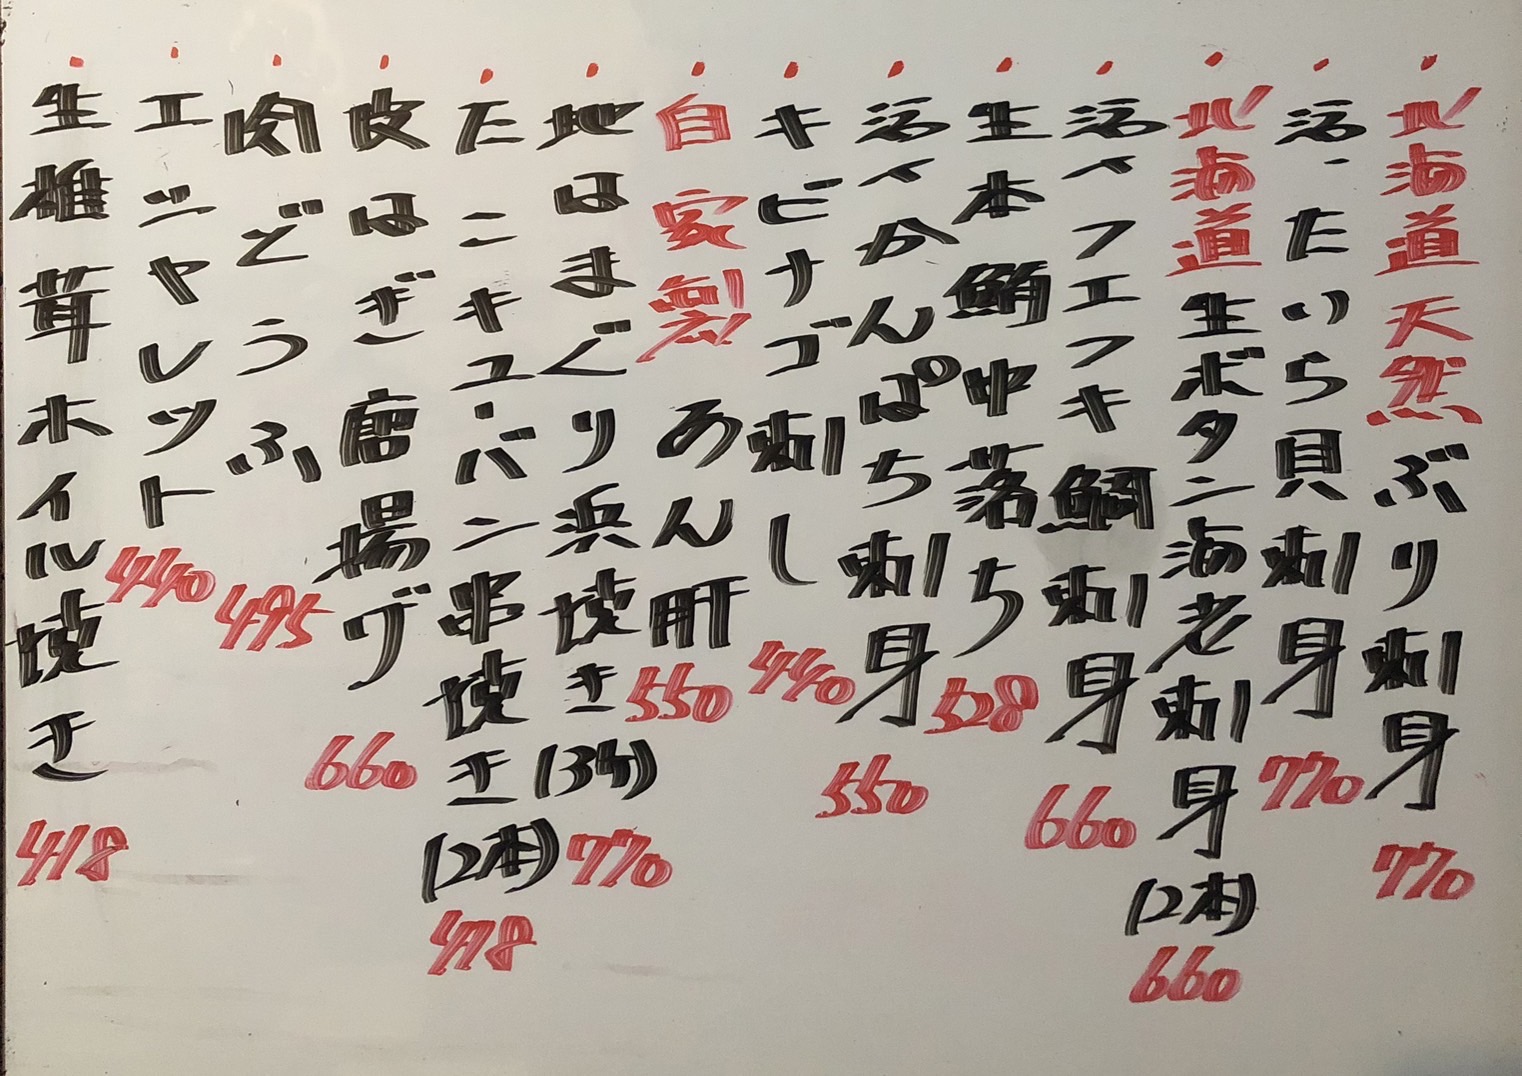 ・北海道 天然ぶり刺身 770
・活、たいら貝刺身 770
・北海道生ボタン海老刺身(2本) 660
・活〆フエフキ鯛刺身 660
・生本鮪中落ち 528
・活〆かんぱち刺身 550
・キビナゴ刺し 440
・自家製 あん肝 550
・地はまぐり浜焼き(3ケ) 770
・たこキュ・バン串焼き(2本) 418
・皮はぎ唐揚げ 660
・肉どうふ 495
・エシャレット 440
・生椎茸ホイル焼き 418